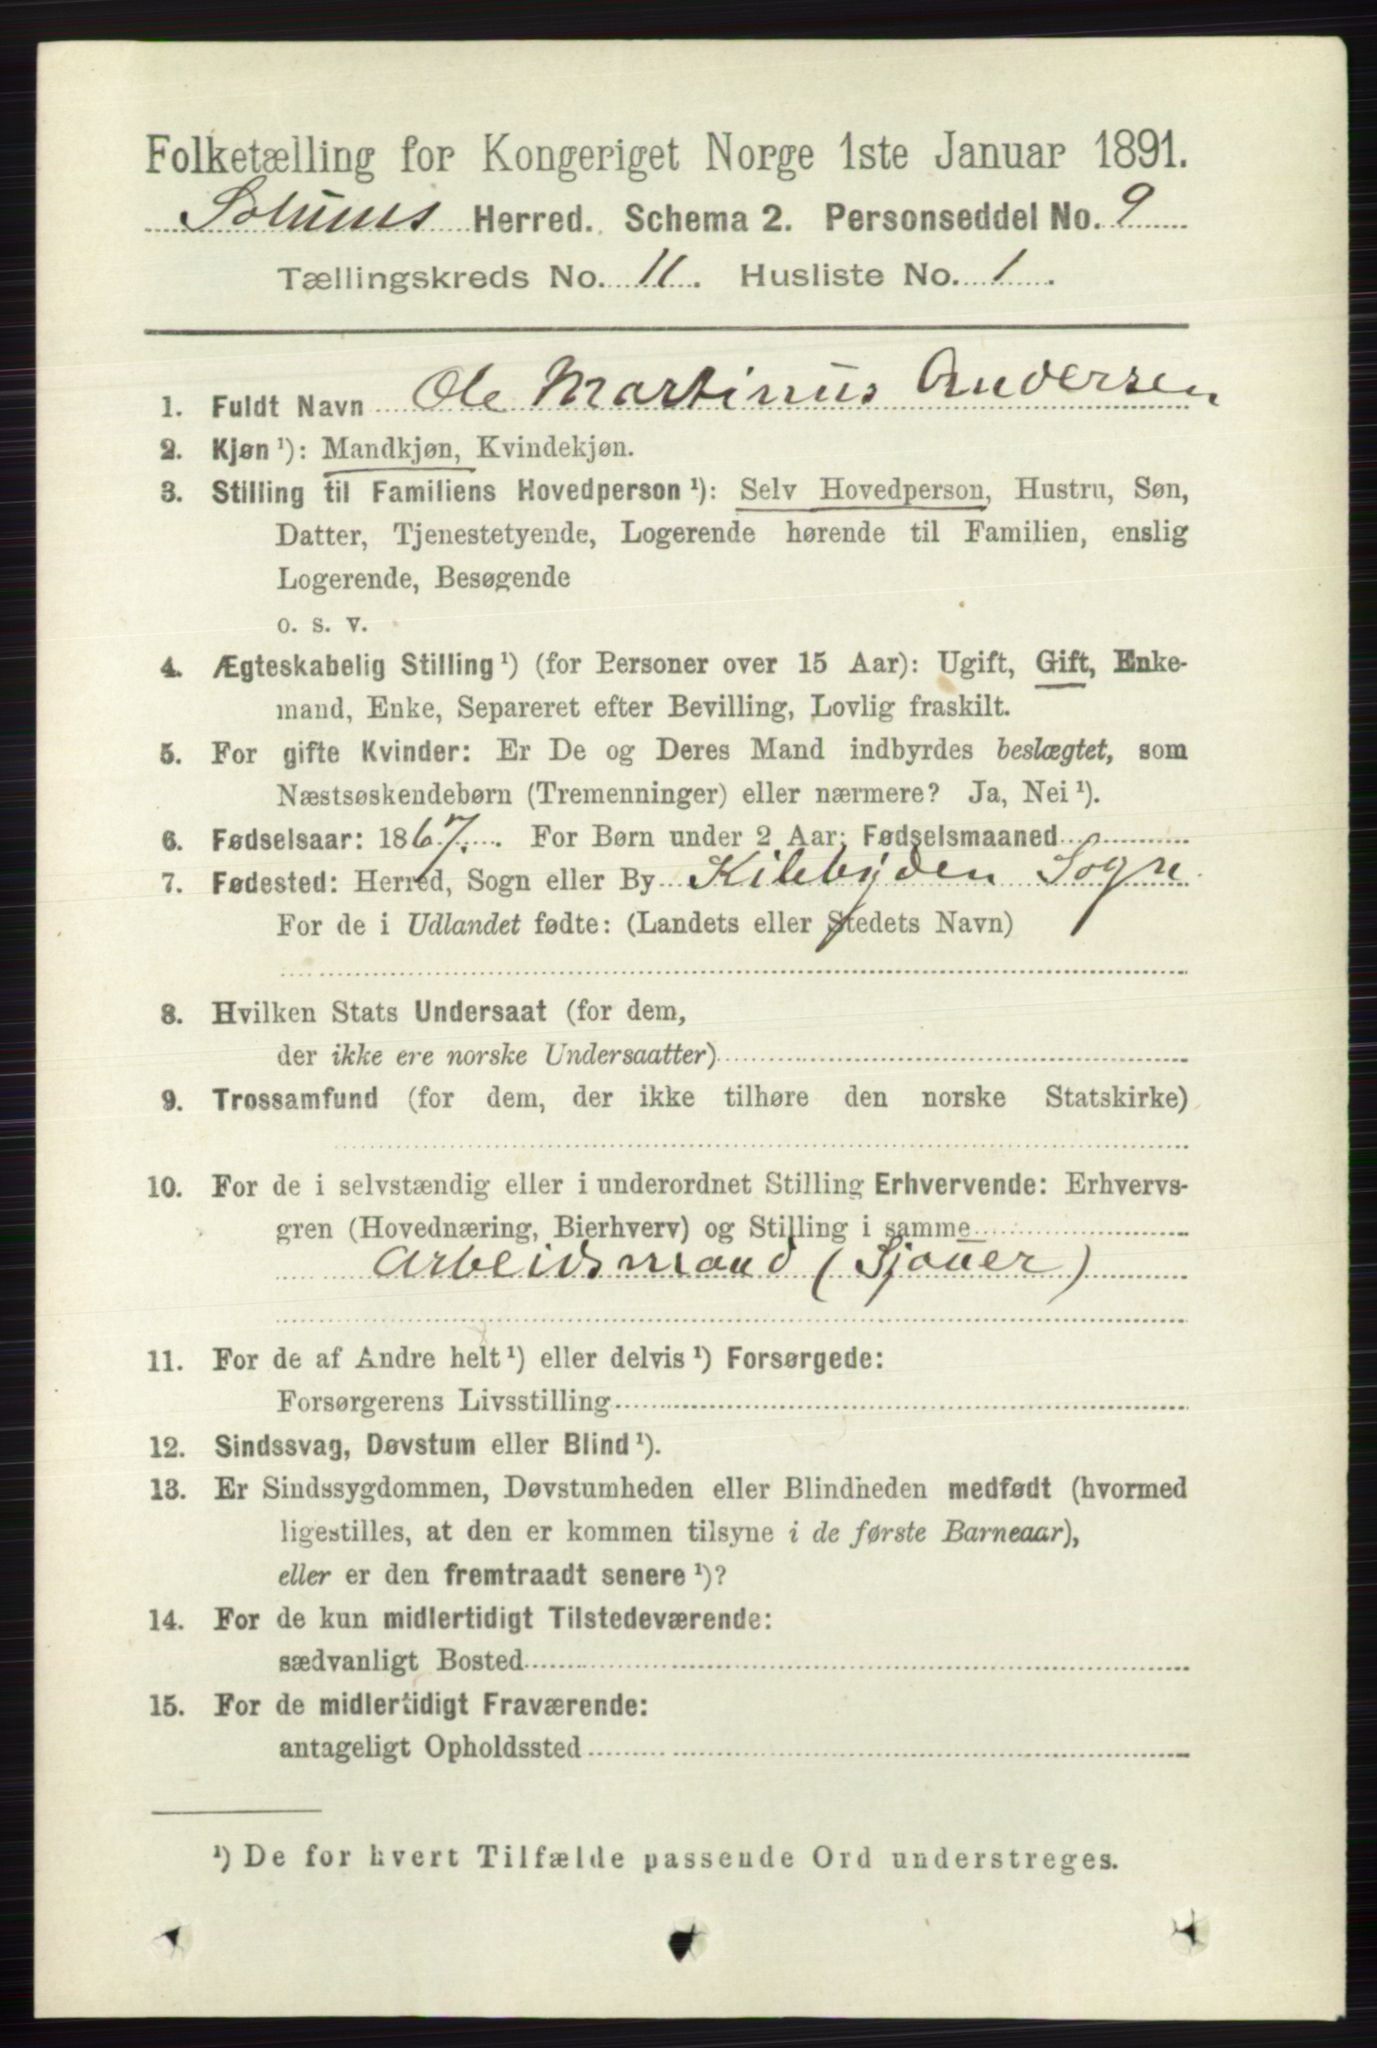 Folketælling for Kongeriget Norge 1ste Januar 1891.
Solums Herred. Schema 2. Personseddel No. 9
Tællingskreds No. 11. Husliste No. 1.
1. Fuldt Navn Ole Martinus Andersen
2. Kjøn ¹): Mandkjøn, Kvindekjøn.
3. Stilling til Familiens Hovedperson ¹): Selv Hovedperson, Hustru, Søn,
Datter, Tjenestetyende, Logerende hørende til Familien, enslig
Logerende, Besøgende
o. s. v.
4. Ægteskabelig Stilling ¹) (for Personer over 15 Aar): Ugift, Gift, Enke-
mand, Enke, Separeret efter Bevilling, Lovlig fraskilt.
5. For gifte Kvinder: Er De og Deres Mand indbyrdes beslægtet, som
Næstsøskendebørn (Tremenninger) eller nærmere? Ja, Nei ¹).
6. Fødselsaar: 1867. For Børn under 2 Aar: Fødselsmaaned
7. Fødested: Herred, Sogn eller By Kilebygden Sogn
For de i Udlandet fødte: (Landets eller Stedets Navn)
8. Hvilken Stats Undersaat (for dem,
der ikke ere norske Undersaatter)
9. Trossamfund (for dem, der ikke tilhøre den norske Statskirke)
10. For de i selvstændig eller i underordnet Stilling Erhvervende: Erhvervs-
gren (Hovednæring, Bierhverv) og Stilling i samme
Arbeidsmand (Sjauer)
11. For de af Andre helt ¹) eller delvis ¹) Forsørgede:
Forsørgerens Livsstilling
12. Sindssvag, Døvstum eller Blind ¹).
13. Er Sindssygdommen, Døvstumheden eller Blindheden medfødt (hvormed
ligestilles, at den er kommen tilsyne i de første Barneaar),
eller er den fremtraadt senere ¹)?
14. For de kun midlertidigt Tilstedeværende:
sædvanligt Bosted
15. For de midlertidigt Fraværende:
antageligt Opholdssted
¹) De for hvert Tilfælde passende Ord understreges.